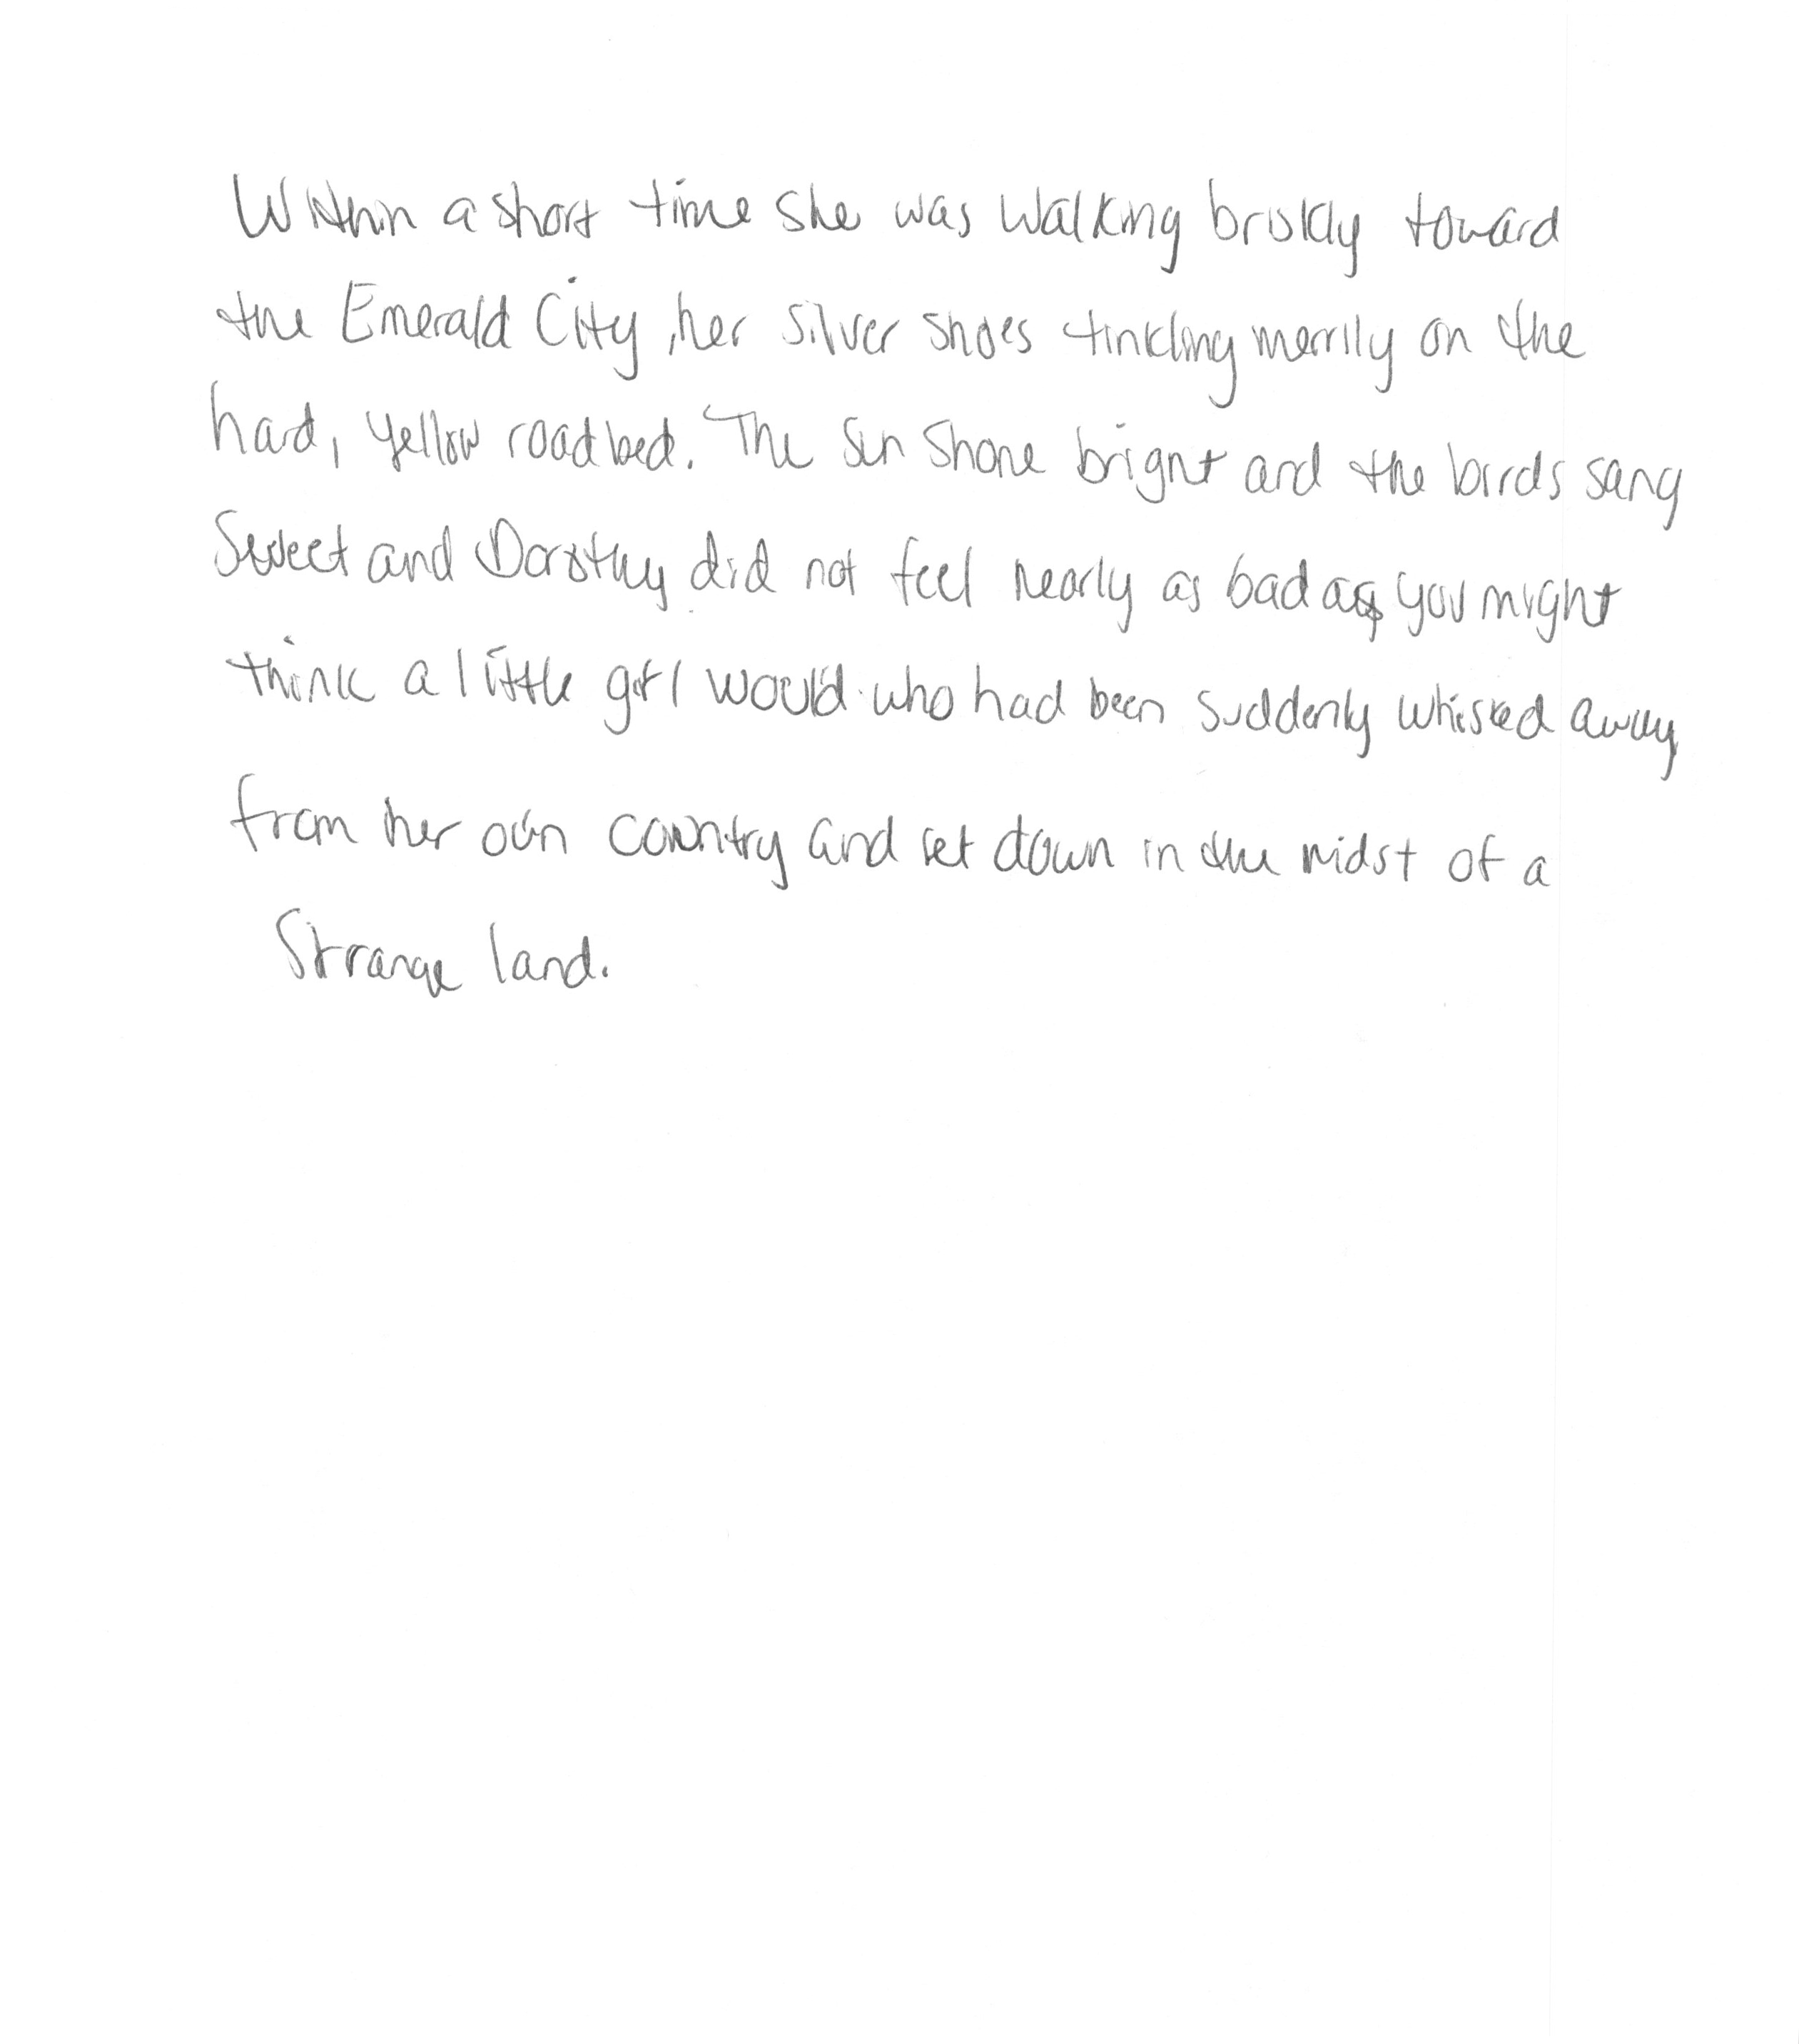 Within a short time she was walking briskly toward
the Emerald City, her silver shoes tinkling merrily on the
hard, yellow roadbed. The sun shone bright and the birds sang
sweet and Dorothy did not feel nearly as bad as you might
think a little girl would who had been suddenly whisked away
from her own country and set down in the midst of a
strange land.